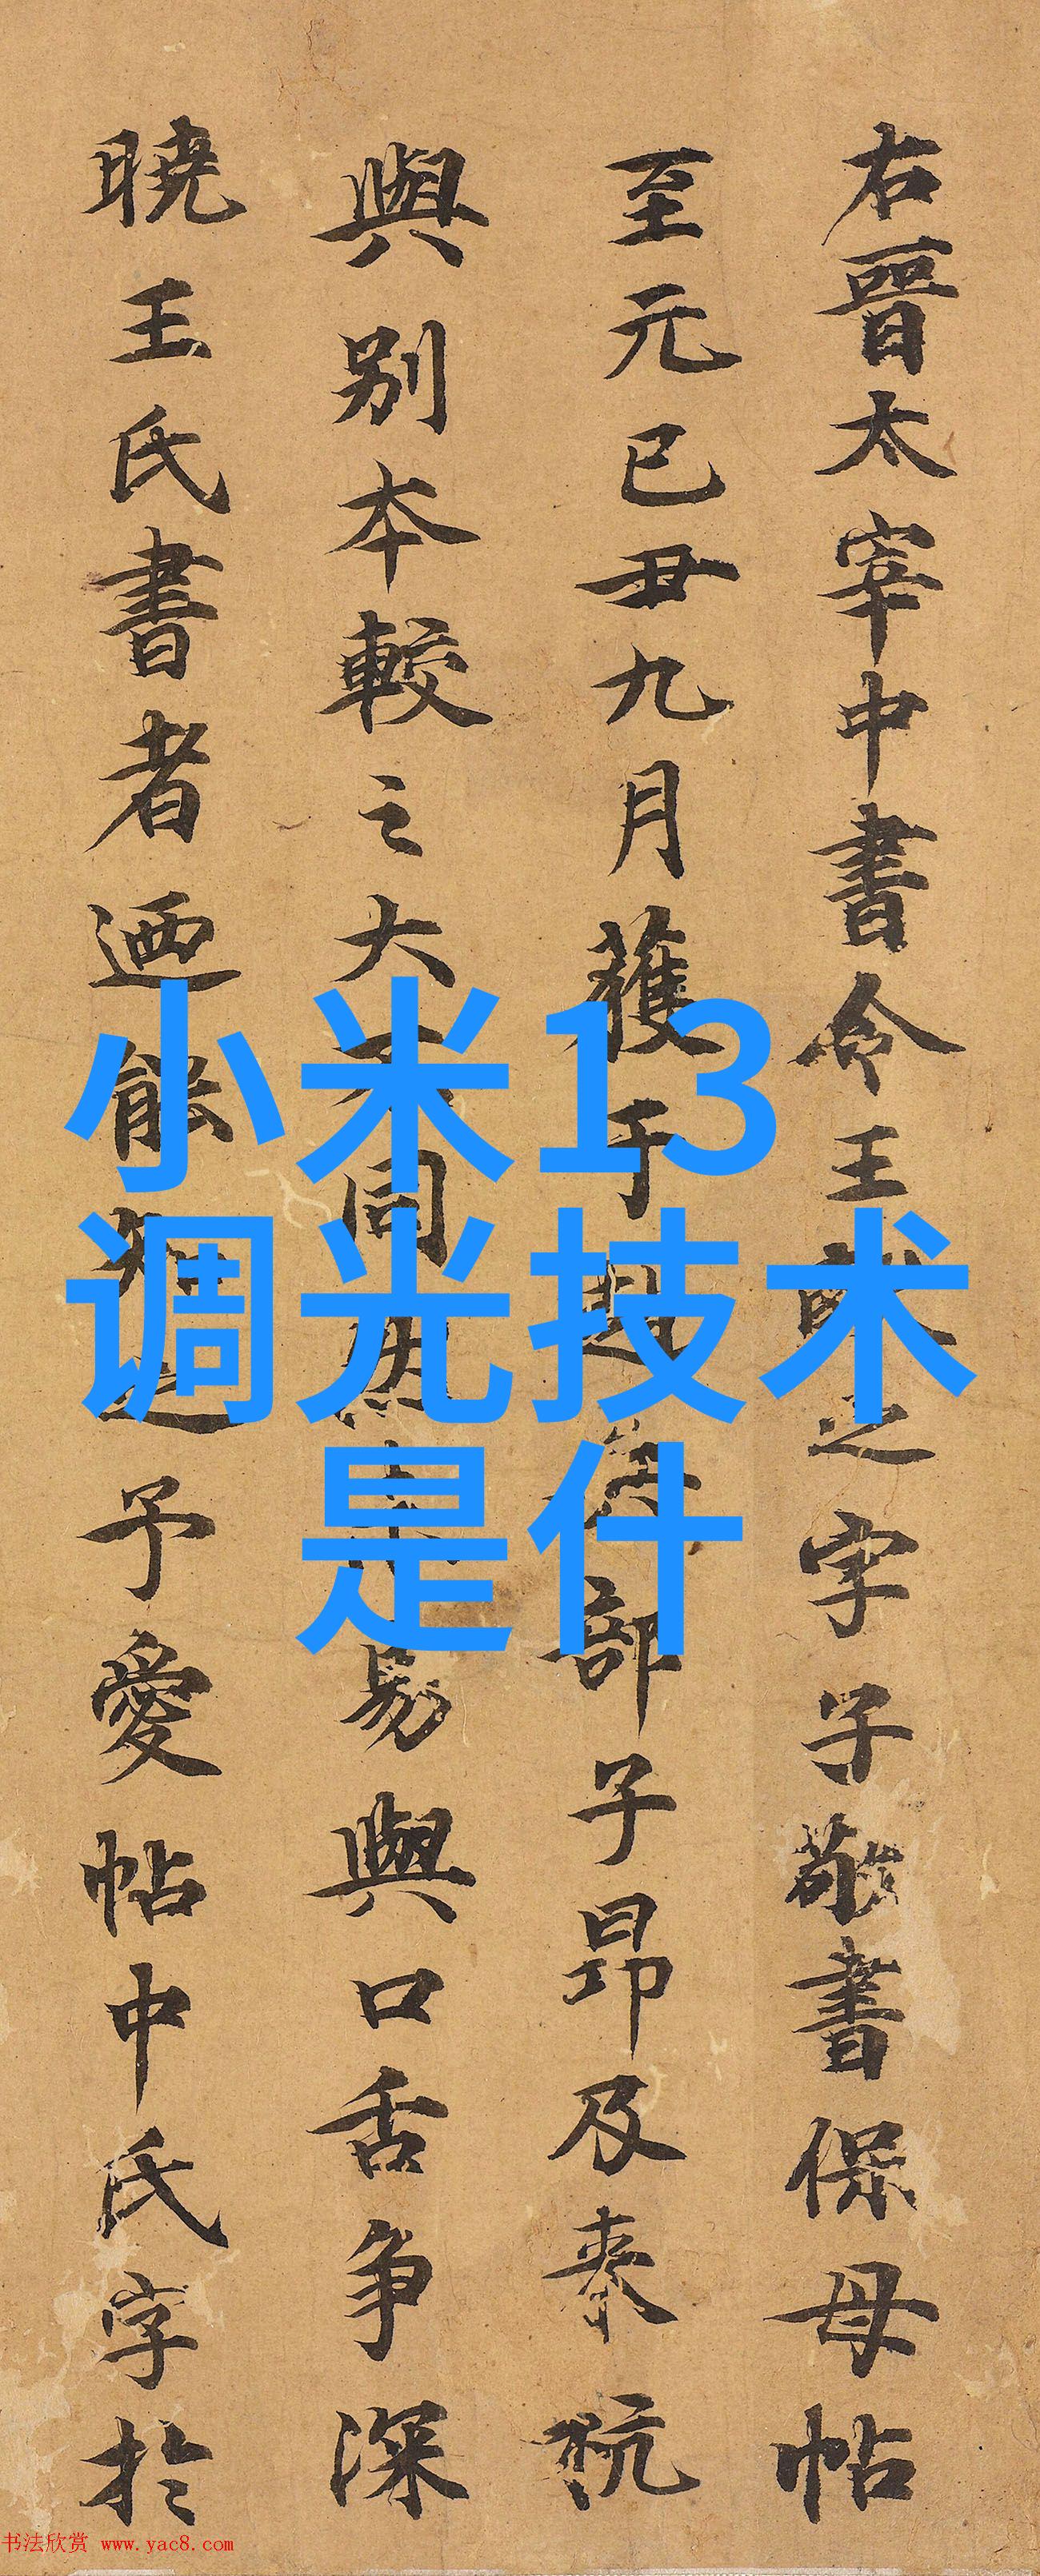 右晉太宰中書令王獻之字子敬書保母帖
至元己丑九月獲于趙兵部子昂及來杭
與別本較之大不同然未易與口舌爭深
曉王氏書者迺能知之予愛帖中氏字於
小米13
调光技术
是什
书法欣赏 www.yac8.com